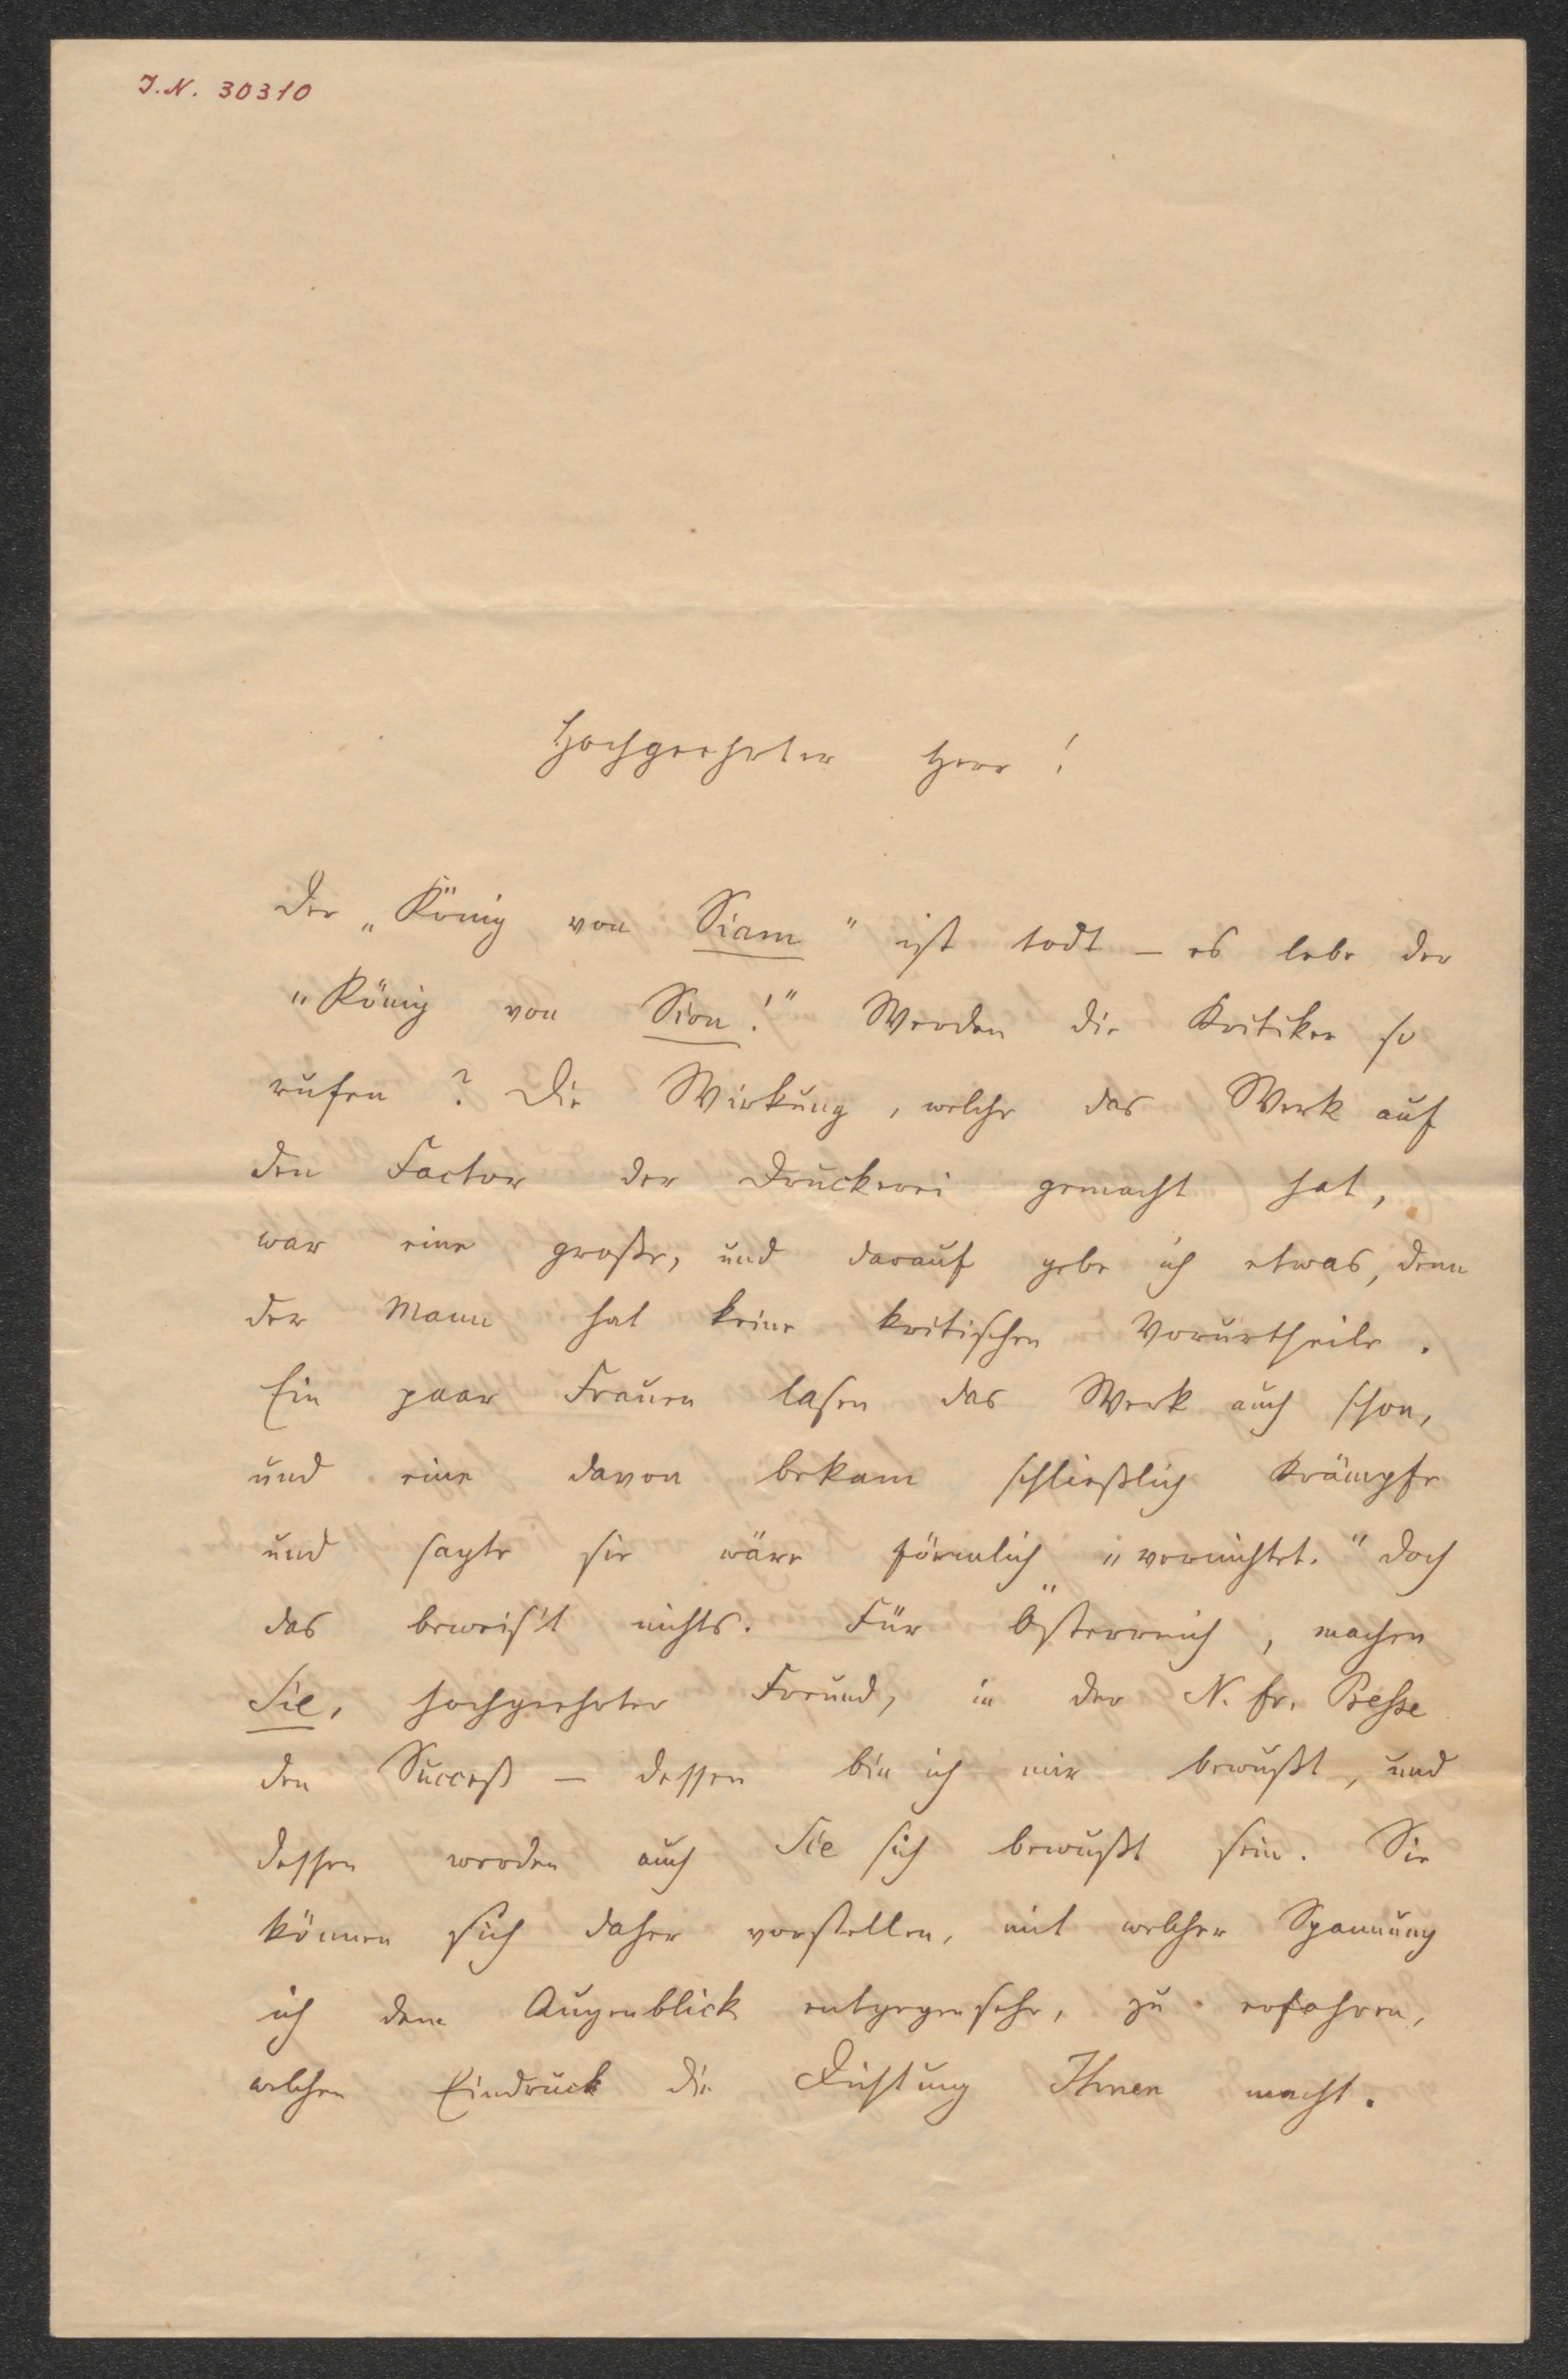 J.N. 30310
Hochgeehrter Herr!
Der „König von Siam" ist todt – es lebe der
"König von Sion!" Werden die Kritiker so
rufen? Die Wirkung, welche das Werk auf
den Factor der Druckerei gemacht hat,
war eine große, und darauf gebe ich etwas, denn
der Mann hat keine kritischen Vorurtheile.
Ein paar Frauen lasen das Werk auch schon,
und eine davon bekam schließlich Krämpfe
und sagte sie wäre förmlich „vernichtet." Doch
das beweis't nichts. Für Österreich, machen
Sie, hochgeehrter Freund, in der N. fr. Presse
den Succeß – dessen bin ich mir bewußt, und
dessen werden auch Sie sich bewußt sein. Sie
können sich daher vorstellen, mit welcher Spannung
ich dem Augenblick entgegensehe, zu erfahren,
welchen Eindruck die Dichtung Ihnen macht.